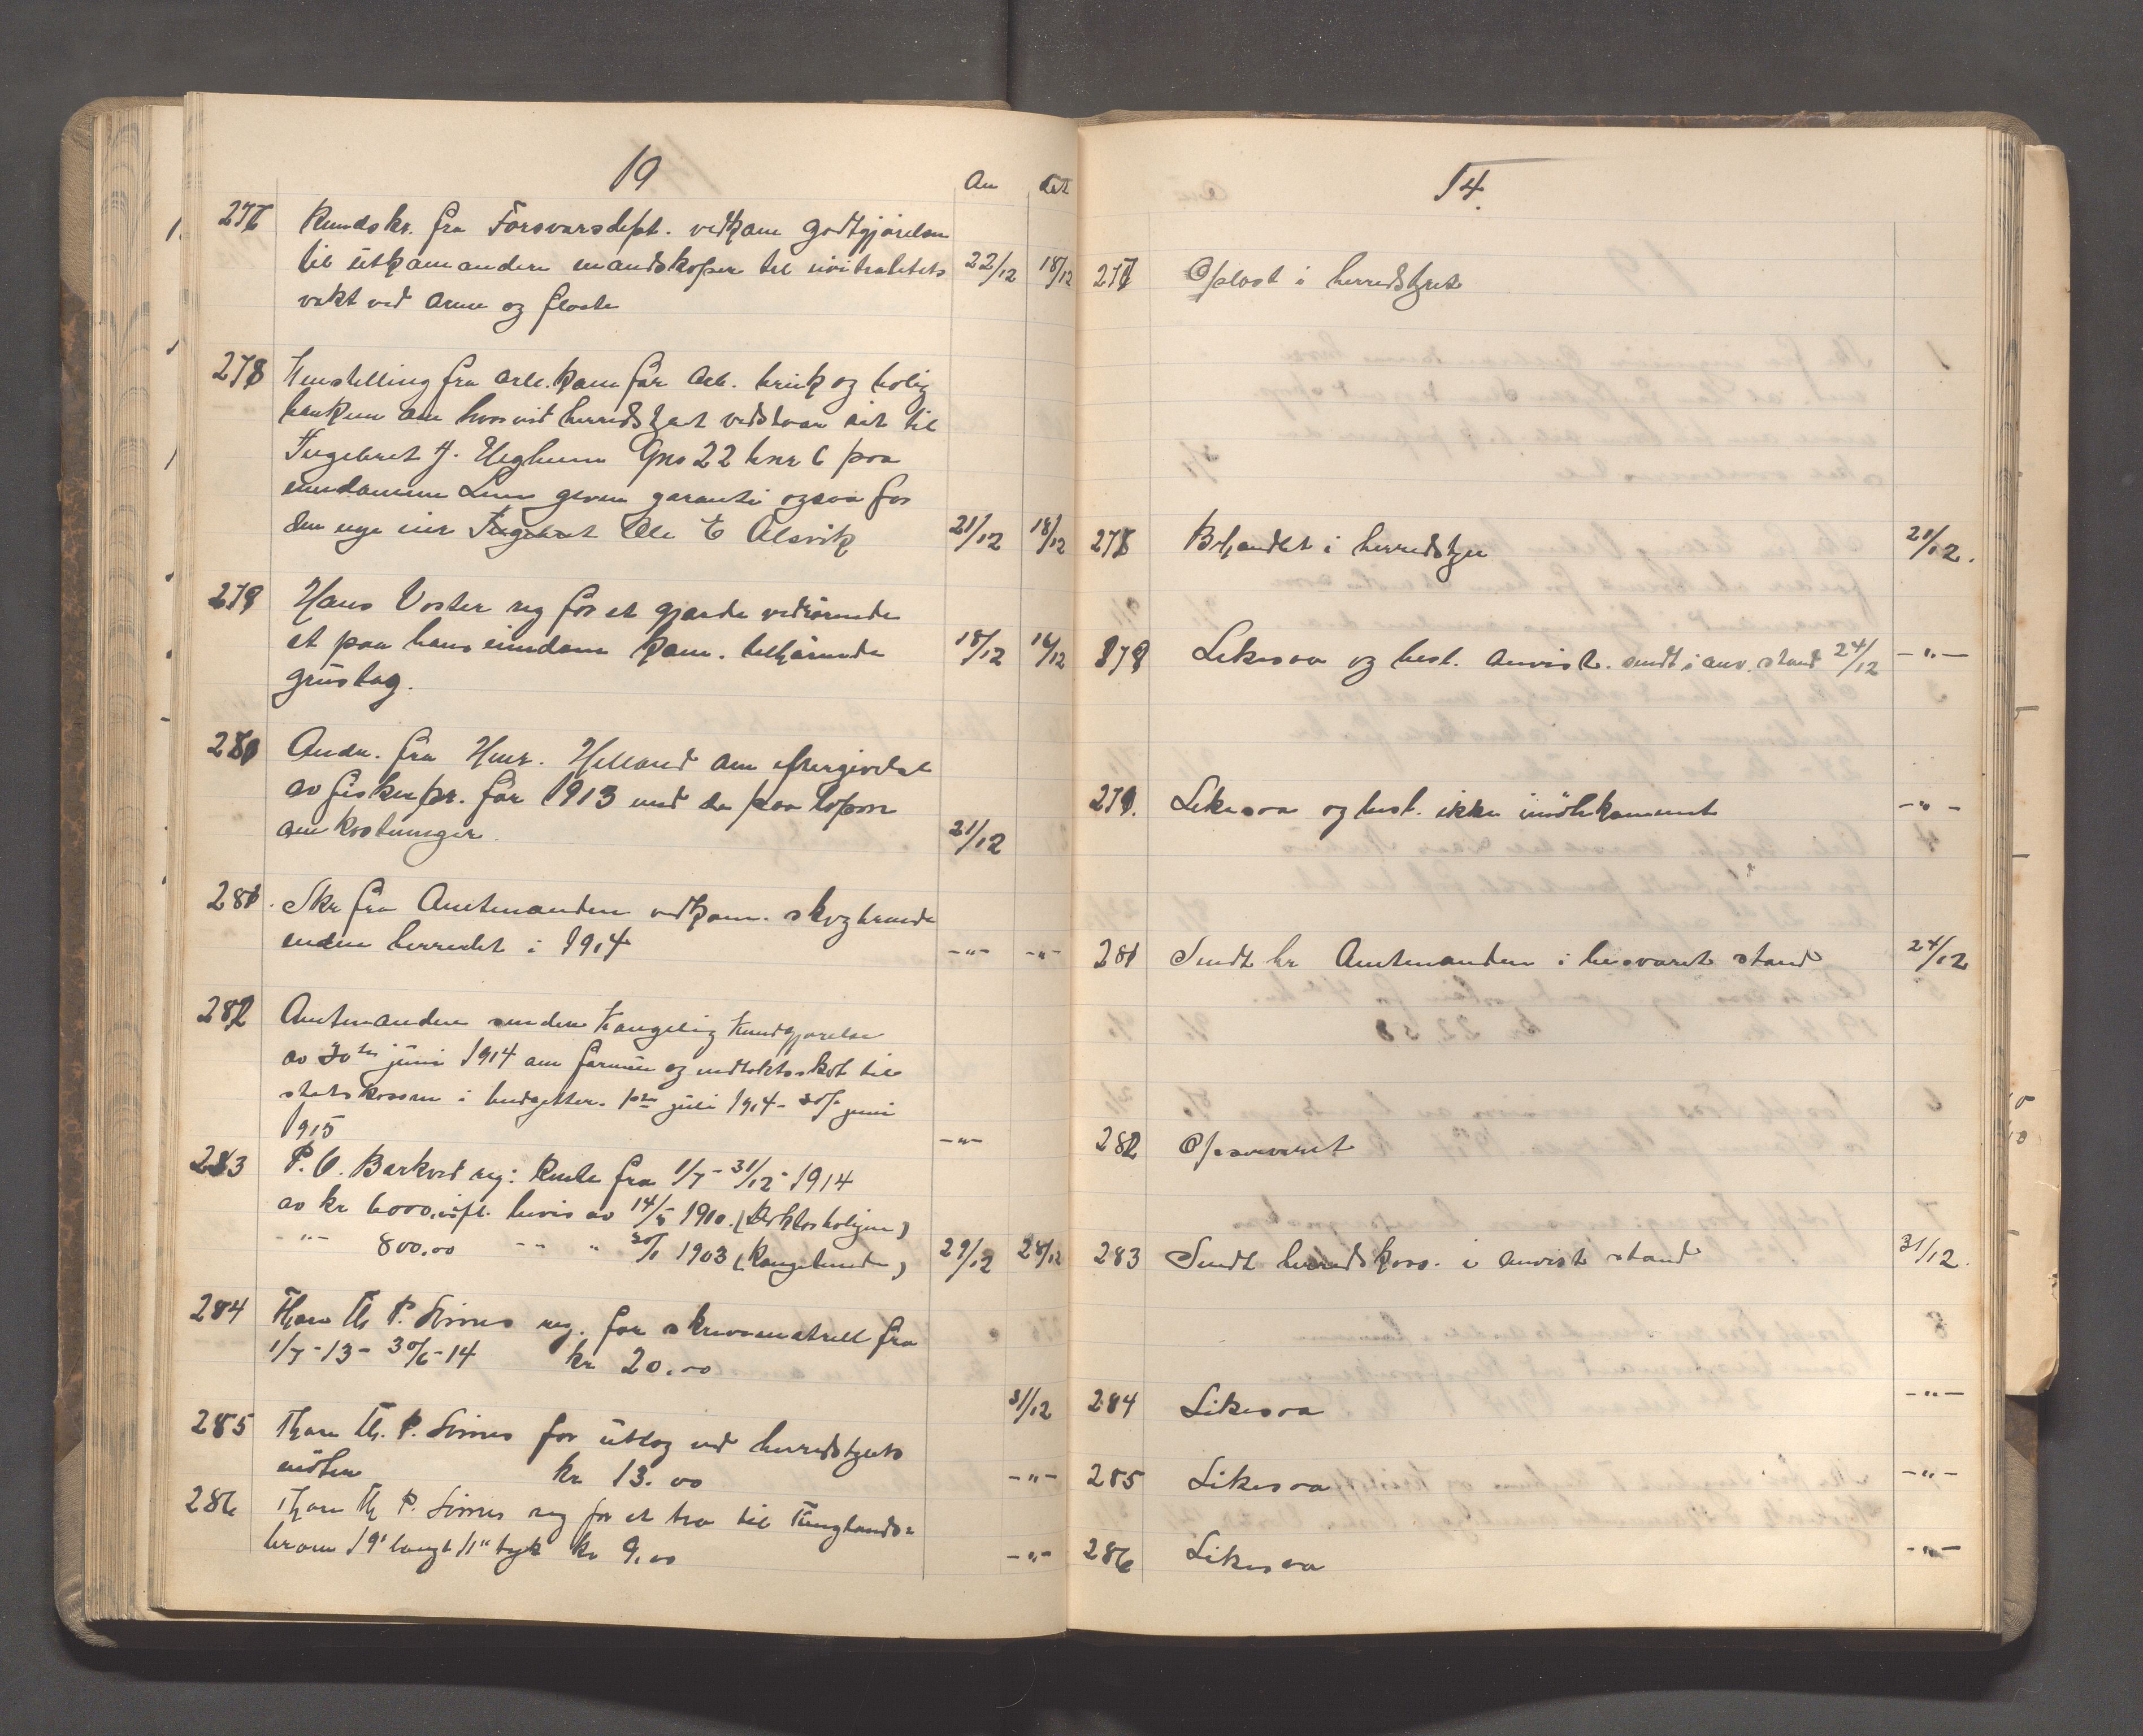 19
An Dat
277 Rundskr. fra Forsvarsdept. vedkom godtgjørelse
til utkommandere mandskaper til nøitralitets 22/12 18/12
vakt ved arme og flaate
278 Henstilling fra arb. kom for Arb. bruk og bolig
banken om hvorvidt herredstyret vedstaar sit til
Ingebret J. Hegheim Gno 22 bnr 6 paa
eiendommen Lien given garanti ogsaa for
den nye eier Ingebret Ole E Alsvik 21/12 18/12
279 Hans Voster reg for et gjærde vedrørende
et paa hans eiendom kom. tilhørende 18/12 16/12
grustag.
280 Andr. fra Henr. Helland om eftergivelse
av fiskepr. for 1913 med de paa løpne
omkostninger. 21/12
281. Skr fra Amtmanden vedkom. skogbrande
inden herredet i 1914 -"- -"-
282 Amtmanden sender kongelig kundgjørelse
av 30te juni 1914 om formue og indtektsskat til
statskassen i budgetter. 1ste juli 1914 - 30/6 juni
1915 -"-
283 P. O. Barkved reg: Rente fra 1/7 - 31/12 - 1914
av kr 6000, ifl. bevis av 14/5 1910. (Doktorboligen)
-"- 800.00 -- " 20/1 1903 (Kongelunde) 29/12 28/12
284 Thore Th P. Sirnes reg. for skrivematriell fra
1/7 - 13 - 30/6 - 14 kr 20.00
31/12
285 Thore Th. P. Sirnes for utlæg ved herredstyrets
møter kr. 13.00 -"-
286 Thore Th P. Sirnes reg for et træ til Tunglands=
broen 19' langt 11" tyk kr 9.00 -"-
14.
277 Oplæst i herredstyret
278 Behandlet i herredstyre 21/12.
279 Likesaa og besl. anvist. sendt i anv. stand 24/12 -"-
279. Likesaa og besl. ikke imøtekommet -"-
281 Sendt hr Amtmanden i besvaret stand 24/12
282 Opbevaret
283 Sendt herredskass. i anvist stand 31/12.
284 Likesaa -"-
285 Likesaa -"-
286 Likesaa -"-